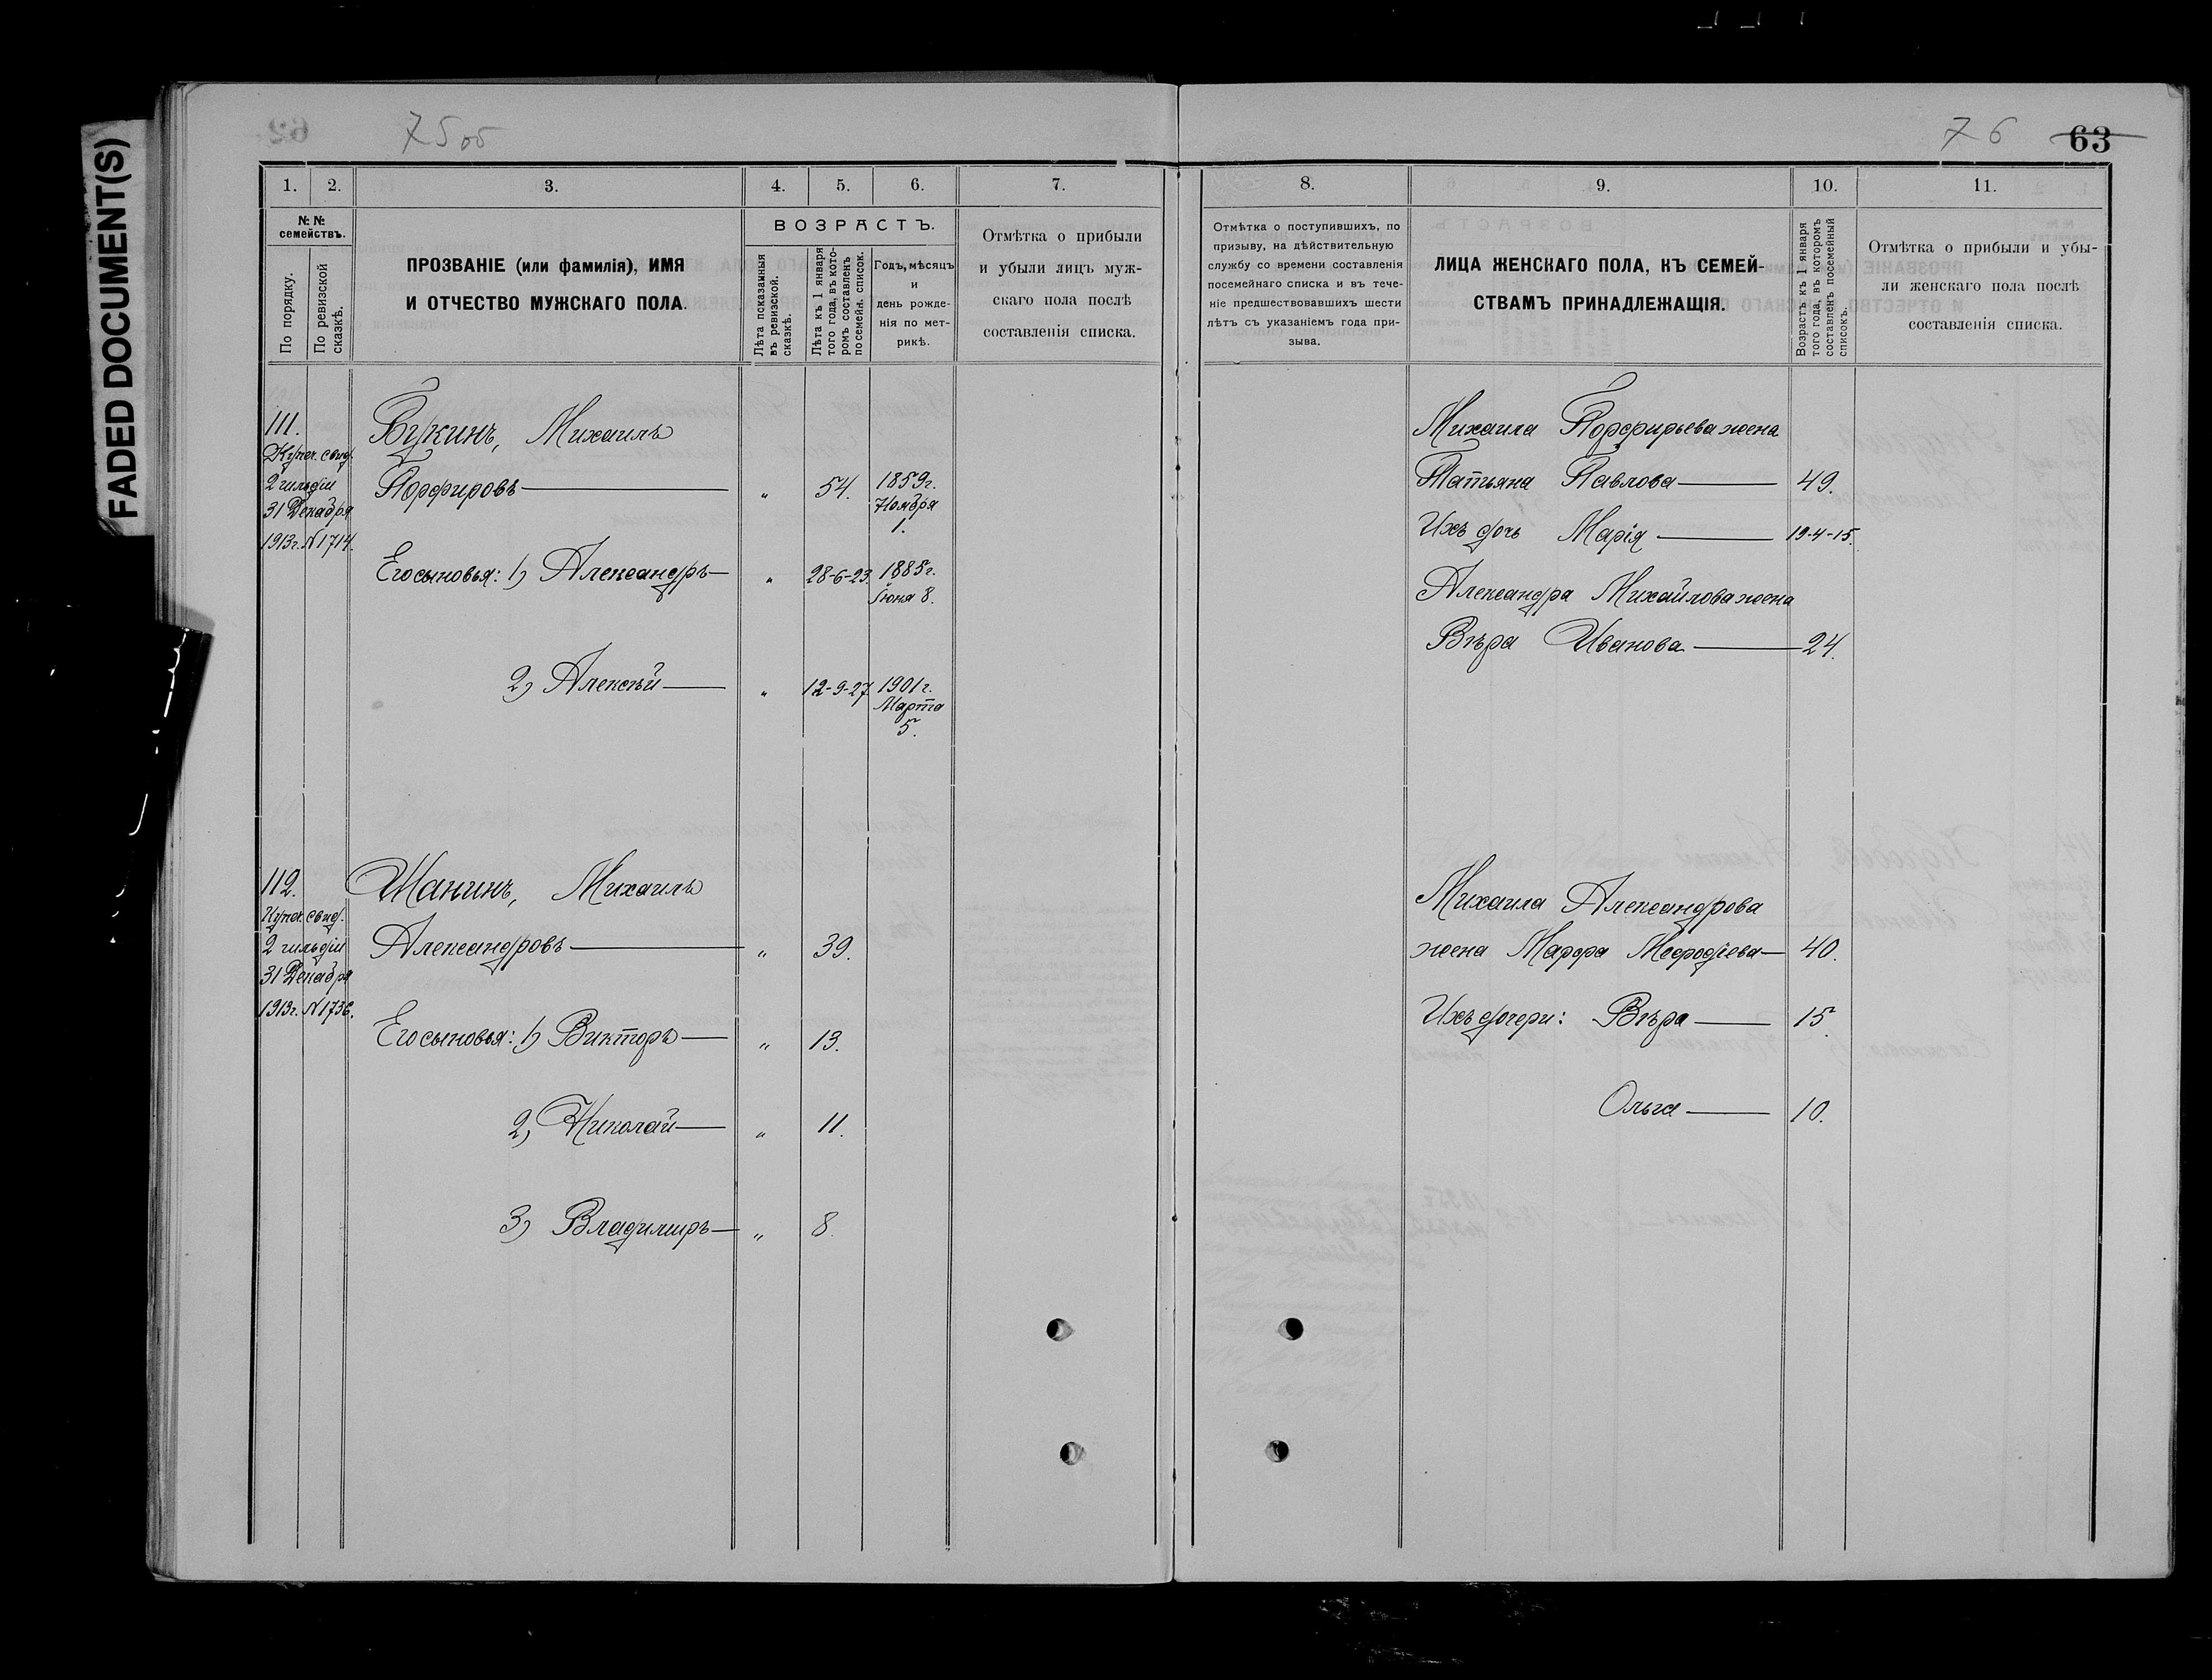 FADED DOCUMENT(S)
75об
76 63
1. 2. 3. 4. 5. 6. 7.
№ №
семействъ.
По порядку.
По ревизской
сказкѣ.
ПРОЗВАНІЕ (или фамилія), ИМЯ
И ОТЧЕСТВО МУЖСКАГО ПОЛА.
ВОЗРАСТЪ.
Лѣта показанныя
въ ревизской.
сказкѣ.
Лѣта къ 1 января
того года, въ кото-
ромъ составленъ
посемейн. список.
Годъ, мѣсяцъ
и
день рожде-
нія по мет-
рикѣ.
Отмѣтка о прибыли
и убыли лицъ муж-
скаго пола послѣ
составленія списка.
111.
Купеч. свид.
2 гильдіи
31 Декабря
1913г. №1714.
Букинъ, Михаилъ
Порфировъ — „ 54. 1859г.
Ноября
1.
Его сыновья: 1) Александръ — „ 28-6-23. 1885г.
Іюня 8.
2) Алексѣй — „ 12-9-27. 1901г.
Марта
5.
112.
Купеч. свид.
2 гильдіи
31 Декабря
1913г. №1736.
Шанинъ, Михаилъ
Александровъ — „ 39.
Его сыновья: 1) Викторъ — „ 13.
2) Николай — „ 11.
3) Владимиръ — „ 8.
8. 9. 10. 11.
Отмѣтка о поступившихъ, по
призыву, на дѣйствительную
службу со времени составленія
посемейнаго списка и въ тече-
ніе предшествовавшихъ шести
лѣтъ съ указаніемъ года при-
зыва.
ЛИЦА ЖЕНСКАГО ПОЛА, КЪ СЕМЕЙ-
СТВАМЪ ПРИНАДЛЕЖАЩІЯ.
Возрастъ къ 1 января
того года, въ которомъ
составленъ посемейный
списокъ.
Отмѣтка о прибыли и убы-
ли женскаго пола послѣ
составленія списка.
Михаила Порфирьева жена
Татьяна Павлова — 49.
Ихъ дочь Марія — 19-4-15.
Александра Михайлова жена
Вѣра Иванова — 24.
Михаила Александрова
жена Марфа Мефодіева — 40.
Ихъ дочери: Вѣра — 15
Ольга — 10.